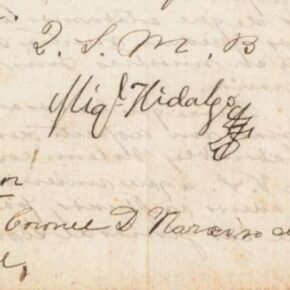 Q. S. M. B
Migl. Hidalgo
Coronel D Narciso de